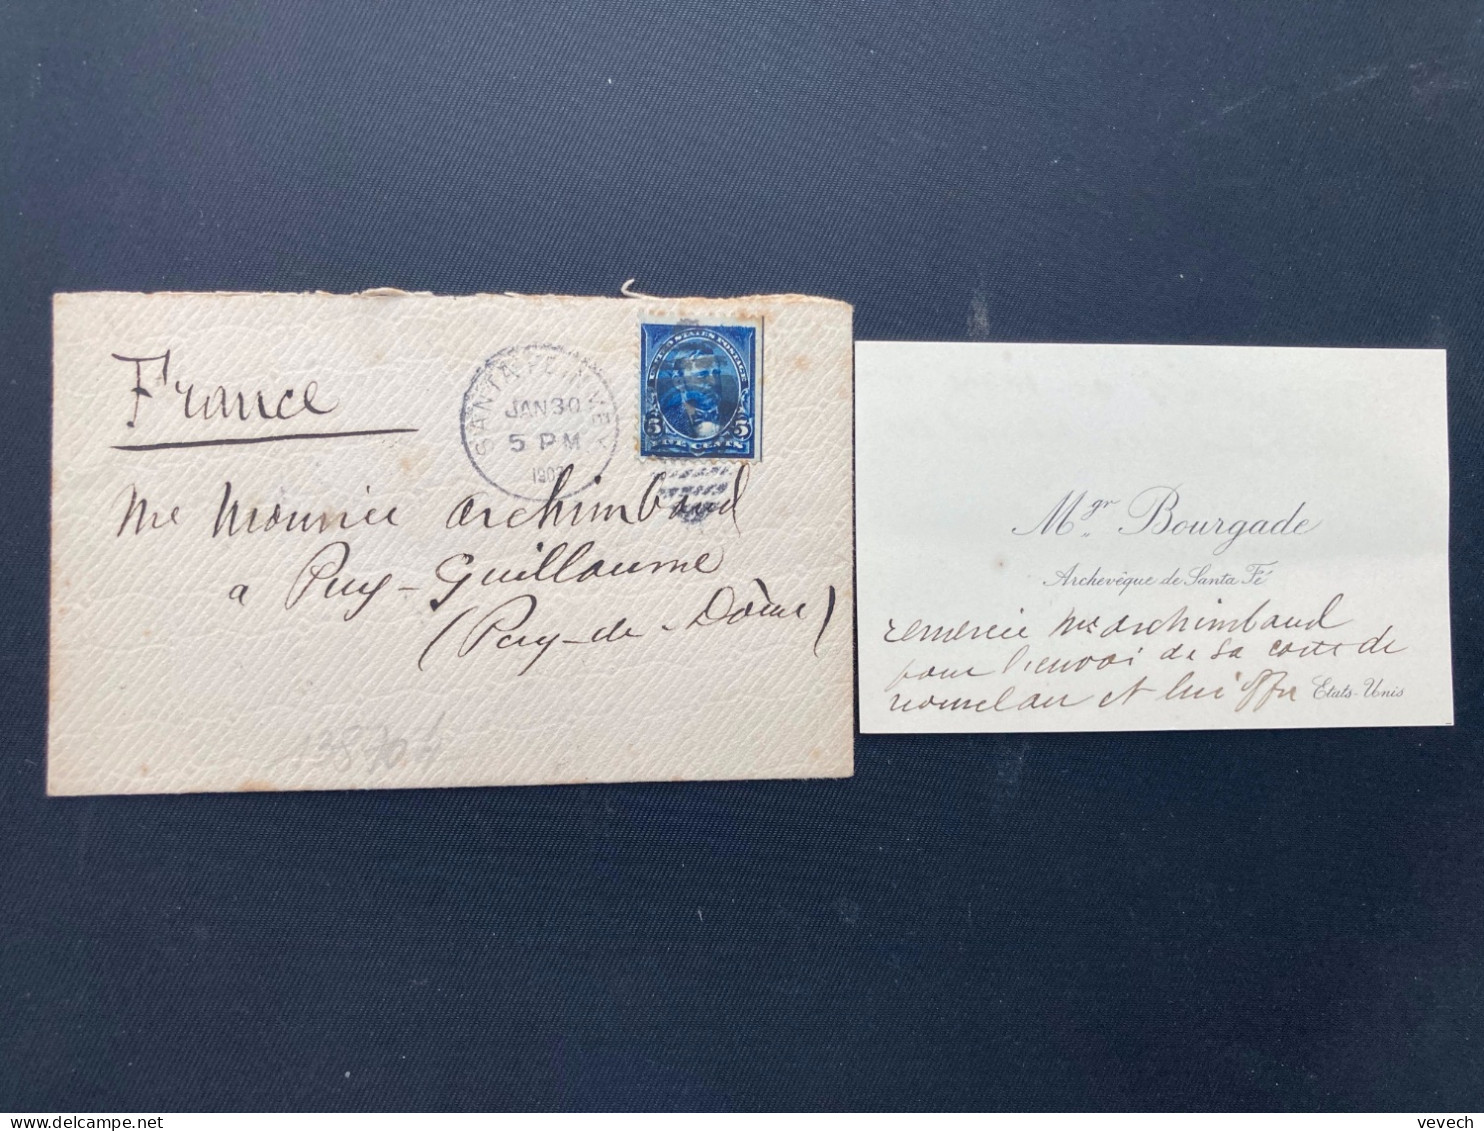 France
SANTA FE, N.MEX.
JAN 30
5 PM
UNITED STATES POSTAGE
5 5
FIVE CENTS
Me Mounier Archimbaud
a Puy-Guillaume
(Puy-de-Dôme)
13870
Mgr Bourgade
Archevêque de Santa Fé
remercie Me archimbaud
pour l'envoi de sa carte de
nouvel an et lui offre
États-Unis
vevech